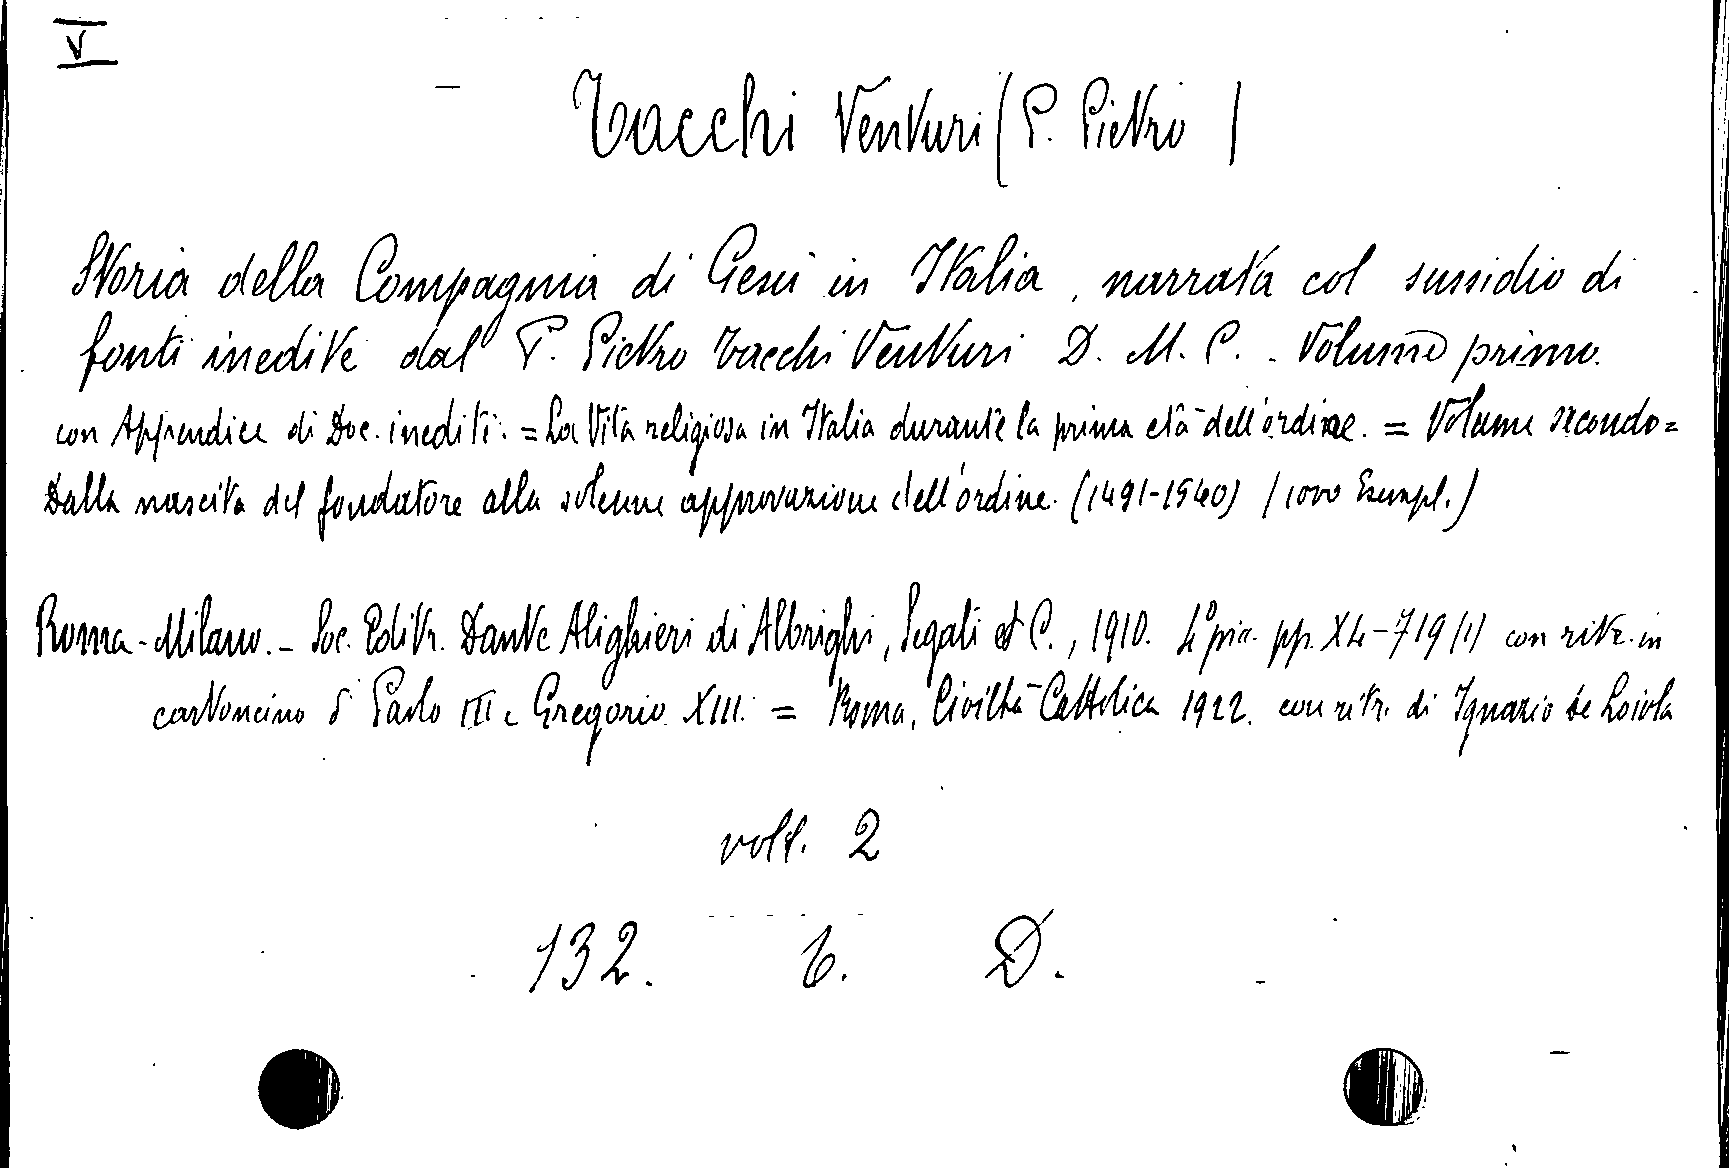 V
Tacchi Venturi (P. Pietro)
Storia della Compagnia di Gesù in Italia, narrata col sussidio di
fonti inedite dal P. Pietro Tacchi Venturi D. M. C. - Volume primo.
con Appendice di Doc. inediti. = La Vita religiosa in Italia durante la prima età dell'ordine. = Volume secondo =
Dalla nascita del fondatore alla solenne approvazione dell'ordine. (1491-1540) (1000 Esempl.)
Roma - Milano. - Soc. Editr. Dante Alighieri di Albrighi, Segati et C., 1910. 4° pic. pp. XL-719 (1) con ritr. in
cartoncino di Paolo III e Gregorio XIII. = Roma, Civiltà Cattolica 1922. con ritr. di Ignazio de Loiola
voll. 2
132. 6. D.